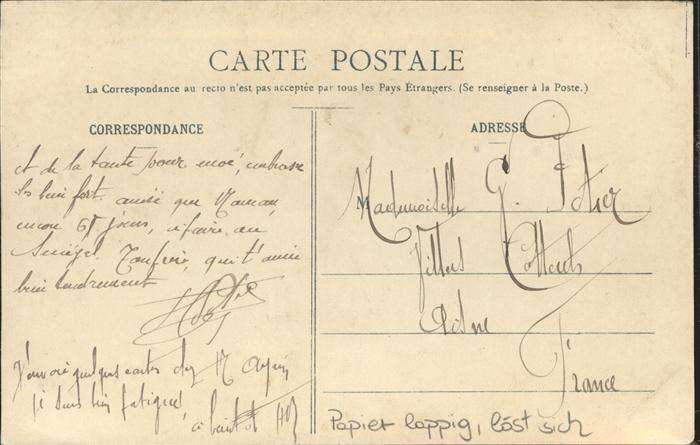 CARTE POSTALE
La Correspondance au recto n'est pas acceptée par tous les Pays Étrangers. (Se renseigner à la Poste.)
CORRESPONDANCE
et de la tante pour moi, embrasse
les bien fort ainsi que Maman,
encore 65 jours, à faire au
Ton frère, qui t'aime
bien tendrement
quelques cartes chez M
je suis bien fatigué,
à bientôt
ADRESSE
Mademoiselle G. Potier
Villers Cotterets
Aisne
France
Papier lappig, löst sich